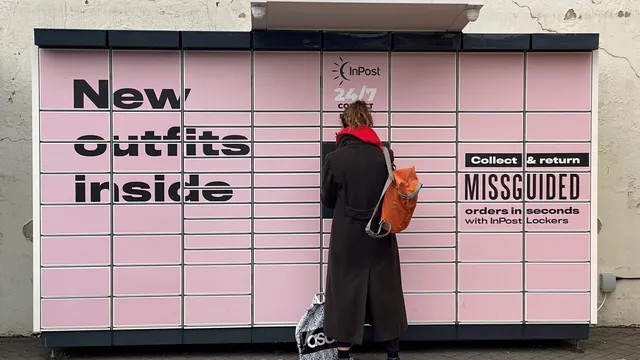 New
outfits
inside
InPost
24/7
Collect & return
MISSGUIDED
orders in seconds
with InPost Lockers